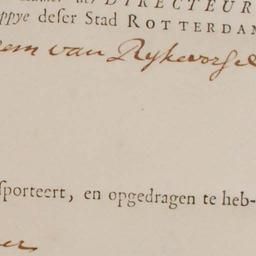 DIRECTEUR
ppye deser Stad ROTTERDAM
em van Rykevorsel
sporteert, en opgedragen te heb-
er